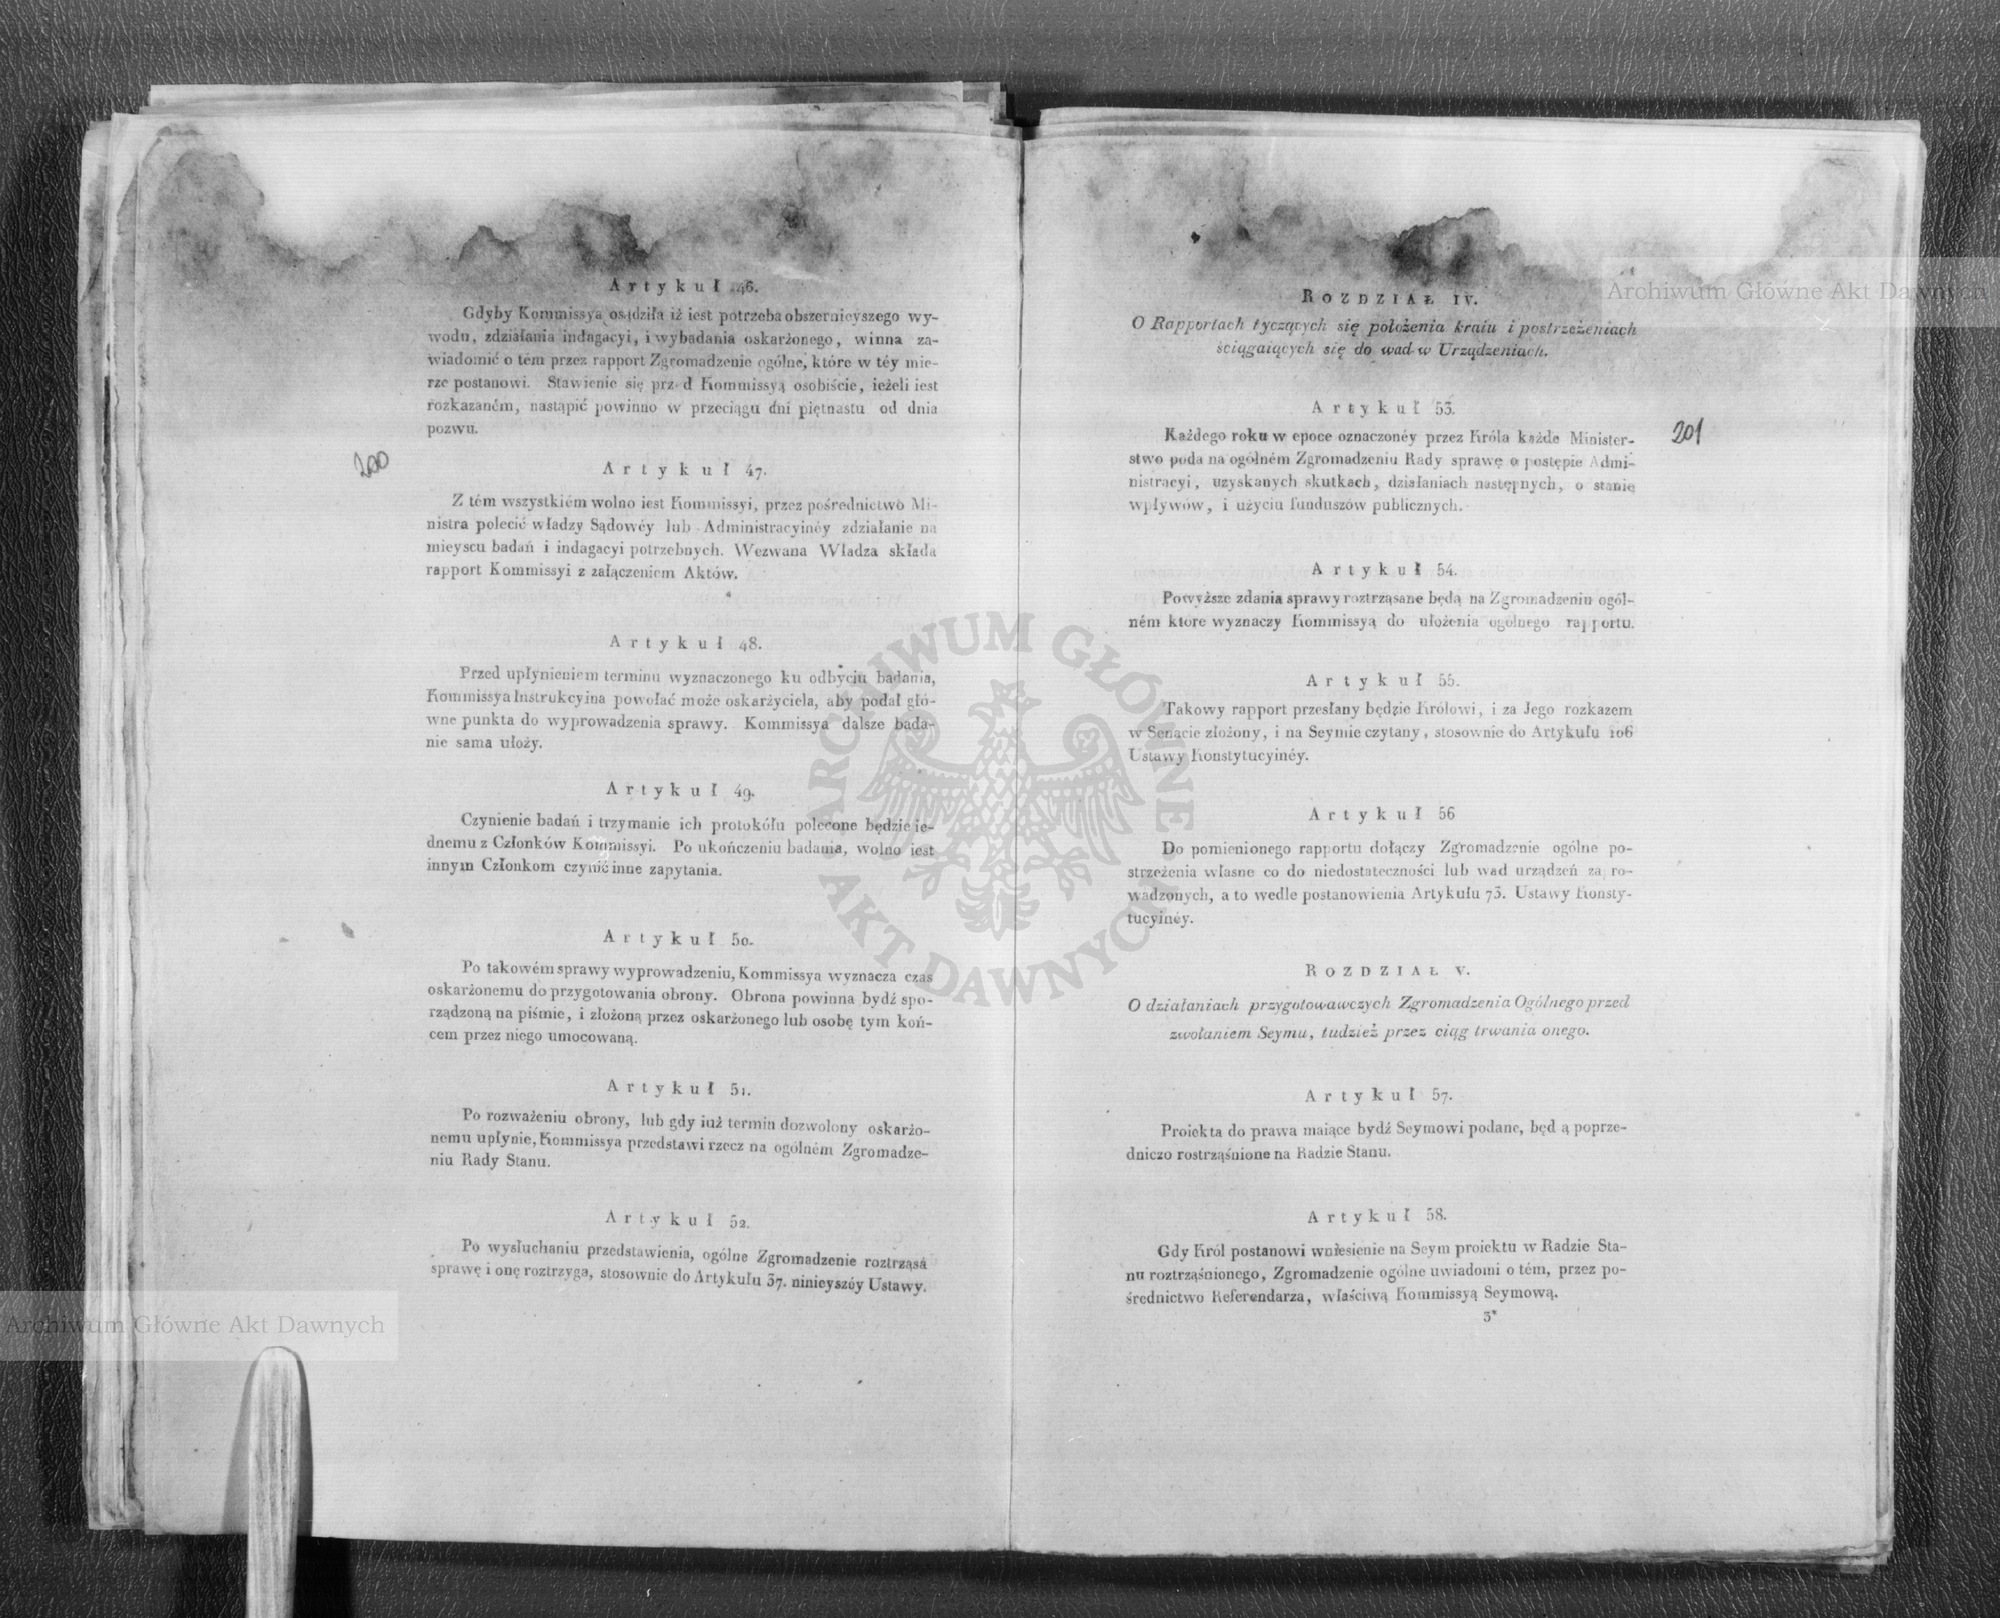 Artykuł 46.
Gdyby Kommissya osądziła iż iest potrzeba obszernieyszego wy-
wodu, zdziałania indagacyi, i wybadania oskarżonego, winna za-
wiadomić o tém przez rapport Zgromadzenie ogólne, które w téy mie-
rze postanowi. Stawienie się przed Kommissyą osobiście, ieżeli iest
rozkazaném, nastąpić powinno w przeciągu dni piętnastu od dnia
pozwu.
200
Artykuł 47.
Z tém wszystkiém wolno iest Kommissyi, przez pośrednictwo Mi-
nistra polecić władzy Sądowéy lub Administracyinéy zdziałanie na
mieyscu badań i indagacyi potrzebnych. Wezwana Władza składa
rapport Kommissyi z załączeniem Aktów.
Artykuł 48.
Przed upłynieniem terminu wyznaczonego ku odbyciu badania,
Kommissya Instrukcyina powołać może oskarżyciela, aby podał głó-
wne punkta do wyprowadzenia sprawy. Kommissya dalsze bada-
nie sama ułoży.
Artykuł 49.
Czynienie badań i trzymanie ich protokółu polecone będzie ie-
dnemu z Członków Kommissyi. Po ukończeniu badania, wolno iest
innym Członkom czynić inne zapytania.
Artykuł 50.
Po takowém sprawy wyprowadzeniu, Kommissya wyznacza czas
oskarżonemu do przygotowania obrony. Obrona powinna bydź spo-
rządzoną na piśmie, i złożoną przez oskarżonego lub osobę tym koń-
cem przez niego umocowaną.
Artykuł 51.
Po rozważeniu obrony, lub gdy iuż termin dozwolony oskarżo-
nemu upłynie, Kommissya przedstawi rzecz na ogólném Zgromadze-
niu Rady Stanu.
Artykuł 52.
Po wysłuchaniu przedstawienia, ogólne Zgromadzenie roztrząsa
sprawę i onę roztrzyga, stosownie do Artykułu 37. ninieyszéy Ustawy.
ROZDZIAŁ IV.
O Rapportach tyczących się położenia kraiu i postrzeżeniach
ściągaiących się do wad w Urządzeniach.
Artykuł 53.
201
Każdego roku w epoce oznaczonéy przez Króla każde Minister-
stwo poda na ogólném Zgromadzeniu Rady sprawę o postępie Admi-
nistracyi, uzyskanych skutkach, działaniach następnych, o stanie
wpływów, i użyciu funduszów publicznych.
Artykuł 54.
Powyższe zdania sprawy roztrząsane będą na Zgromadzeniu ogól-
ném które wyznaczy Kommissyą do ułożenia ogólnego rapportu.
Artykuł 55.
Takowy rapport przesłany będzie Królowi, i za Jego rozkazem
w Senacie złożony, i na Seymie czytany, stosownie do Artykułu 106
Ustawy Konstytucyinéy.
Artykuł 56
Do pomienionego rapportu dołączy Zgromadzenie ogólne po-
strzeżenia własne co do niedostateczności lub wad urządzeń zapro-
wadzonych, a to wedle postanowienia Artykułu 73. Ustawy Konsty-
tucyinéy.
ROZDZIAŁ V.
O działaniach przygotowawczych Zgromadzenia Ogólnego przed
zwołaniem Seymu, tudzież przez ciąg trwania onego.
Artykuł 57.
Proiekta do prawa maiące bydź Seymowi podane, będą poprze-
dniczo rostrząśnione na Radzie Stanu.
Artykuł 58.
Gdy Król postanowi wniesienie na Seym proiektu w Radzie Sta-
nu roztrząśnionego, Zgromadzenie ogólne uwiadomi o tém, przez po-
średnictwo Referendarza, właściwą Kommissyą Seymową.
3*
Archiwum Główne Akt Dawnych
Archiwum Główne Akt Dawnych
ARCHIWUM GŁÓWNE
AKT DAWNYCH